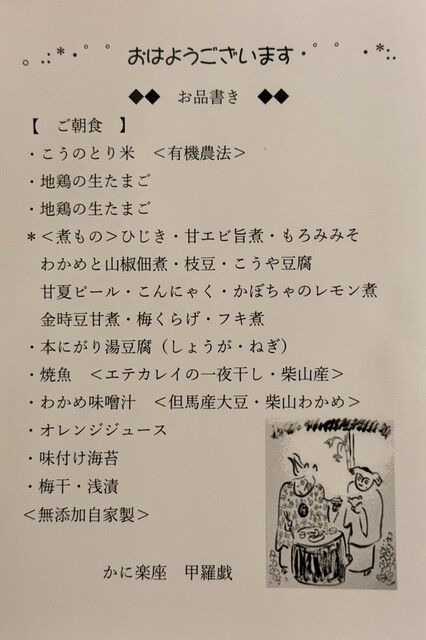 。.:*・゜゜ おはようございます・゜゜・*:.
◆◆ お品書き ◆◆
【 ご朝食 】
・こうのとり米 ＜有機農法＞
・地鶏の生たまご
・地鶏の生たまご
＊＜煮もの＞ひじき・甘エビ旨煮・もろみみそ
わかめと山椒佃煮・枝豆・こうや豆腐
甘夏ピール・こんにゃく・かぼちゃのレモン煮
金時豆甘煮・梅くらげ・フキ煮
・本にがり湯豆腐（しょうが・ねぎ）
・焼魚 ＜エテカレイの一夜干し・柴山産＞
・わかめ味噌汁 ＜但馬産大豆・柴山わかめ＞
・オレンジジュース
・味付け海苔
・梅干・浅漬
＜無添加自家製＞
かに楽座 甲羅戯